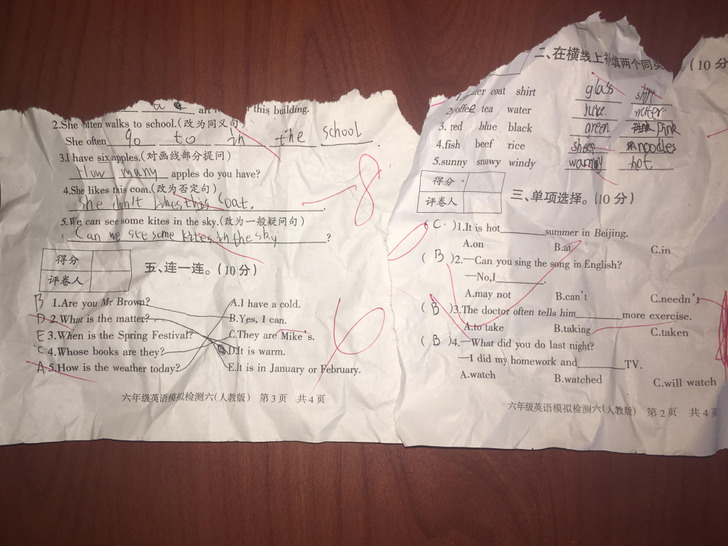 this building.
2.She often walks to school.(改为同义句)
She often go to in the school
3.I have six apples.(对画线部分提问)
How many apples do you have?
4.She likes this coat.(改为否定句)
she don't likes this coat.
5.We can see some kites in the sky.(改为一般疑问句)
Can we see some kites in the sky ?
8
得分
评卷人
五、连一连。(10分)
B 1.Are you Mr Brown? A.I have a cold.
D 2.What is the matter? B.Yes, I can.
E 3.When is the Spring Festival? C.They are Mike's.
C 4.Whose books are they? D.It is warm.
A 5.How is the weather today? E.It is in January or February.
6
六年级英语模拟检测六(人教版) 第3页 共4页
二、在横线上 填两个同类 (10分
coat shirt glass
2.coffee tea water juice
3. red blue black green pink
4.fish beef rice noodles
5.sunny snowy windy hot
得分
评卷人
三、单项选择。(10分)
( C )1.It is hot summer in Beijing.
A.on B.at C.in
( B )2.—Can you sing the song in English?
—No,I .
A.may not B.can't C.needn't
( B )3.The doctor often tells him more exercise.
A.to take B.taking C.taken
( B )4.—What did you do last night?
—I did my homework and TV.
A.watch B.watched C.will watch
六年级英语模拟检测六(人教版) 第2页 共4